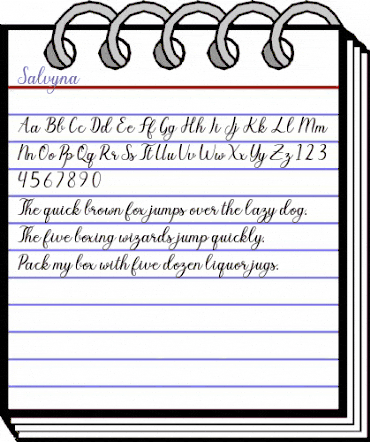 Salvyna
Aa Bb Cc Dd Ee Ff Gg Hh Ii Jj Kk Ll Mm
Nn Oo Pp Qq Rr Ss Tt Uu Vv Ww Xx Yy Zz 1 2 3
4 5 6 7 8 9 0
The quick brown fox jumps over the lazy dog.
The five boxing wizards jump quickly.
Pack my box with five dozen liquor jugs.